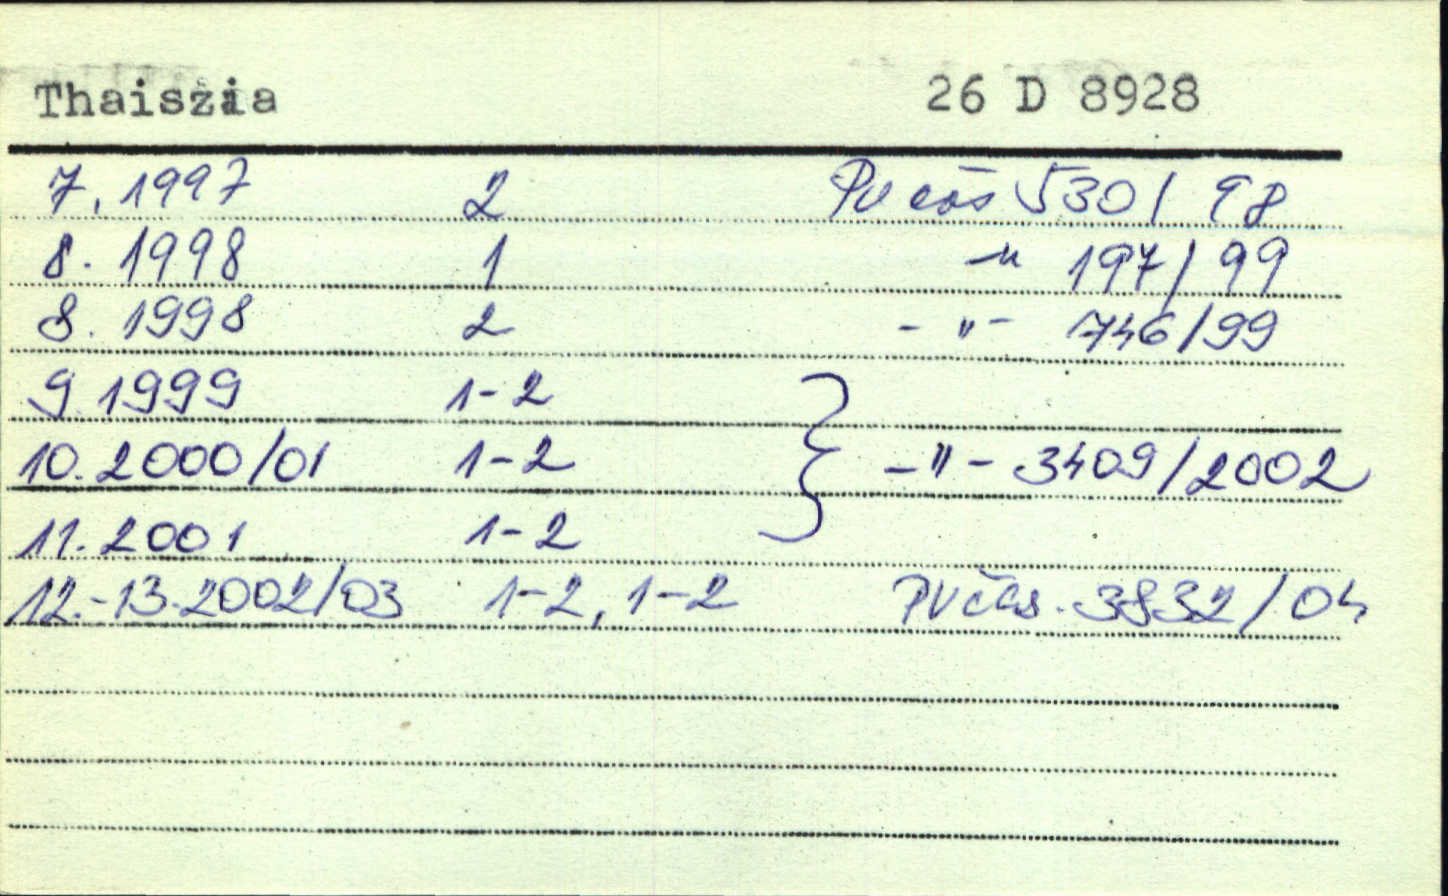 Thaiszia 26 D 8928
7. 1997 2 PV čas 530/98
8. 1998 1 -"- 197/99
8. 1998 2 -"- 746/99
9. 1999 1-2
10. 2000/01 1-2 } -"- 3409/2002
11. 2001 1-2
12.-13. 2002/03 1-2, 1-2 PV čas. 3832/04